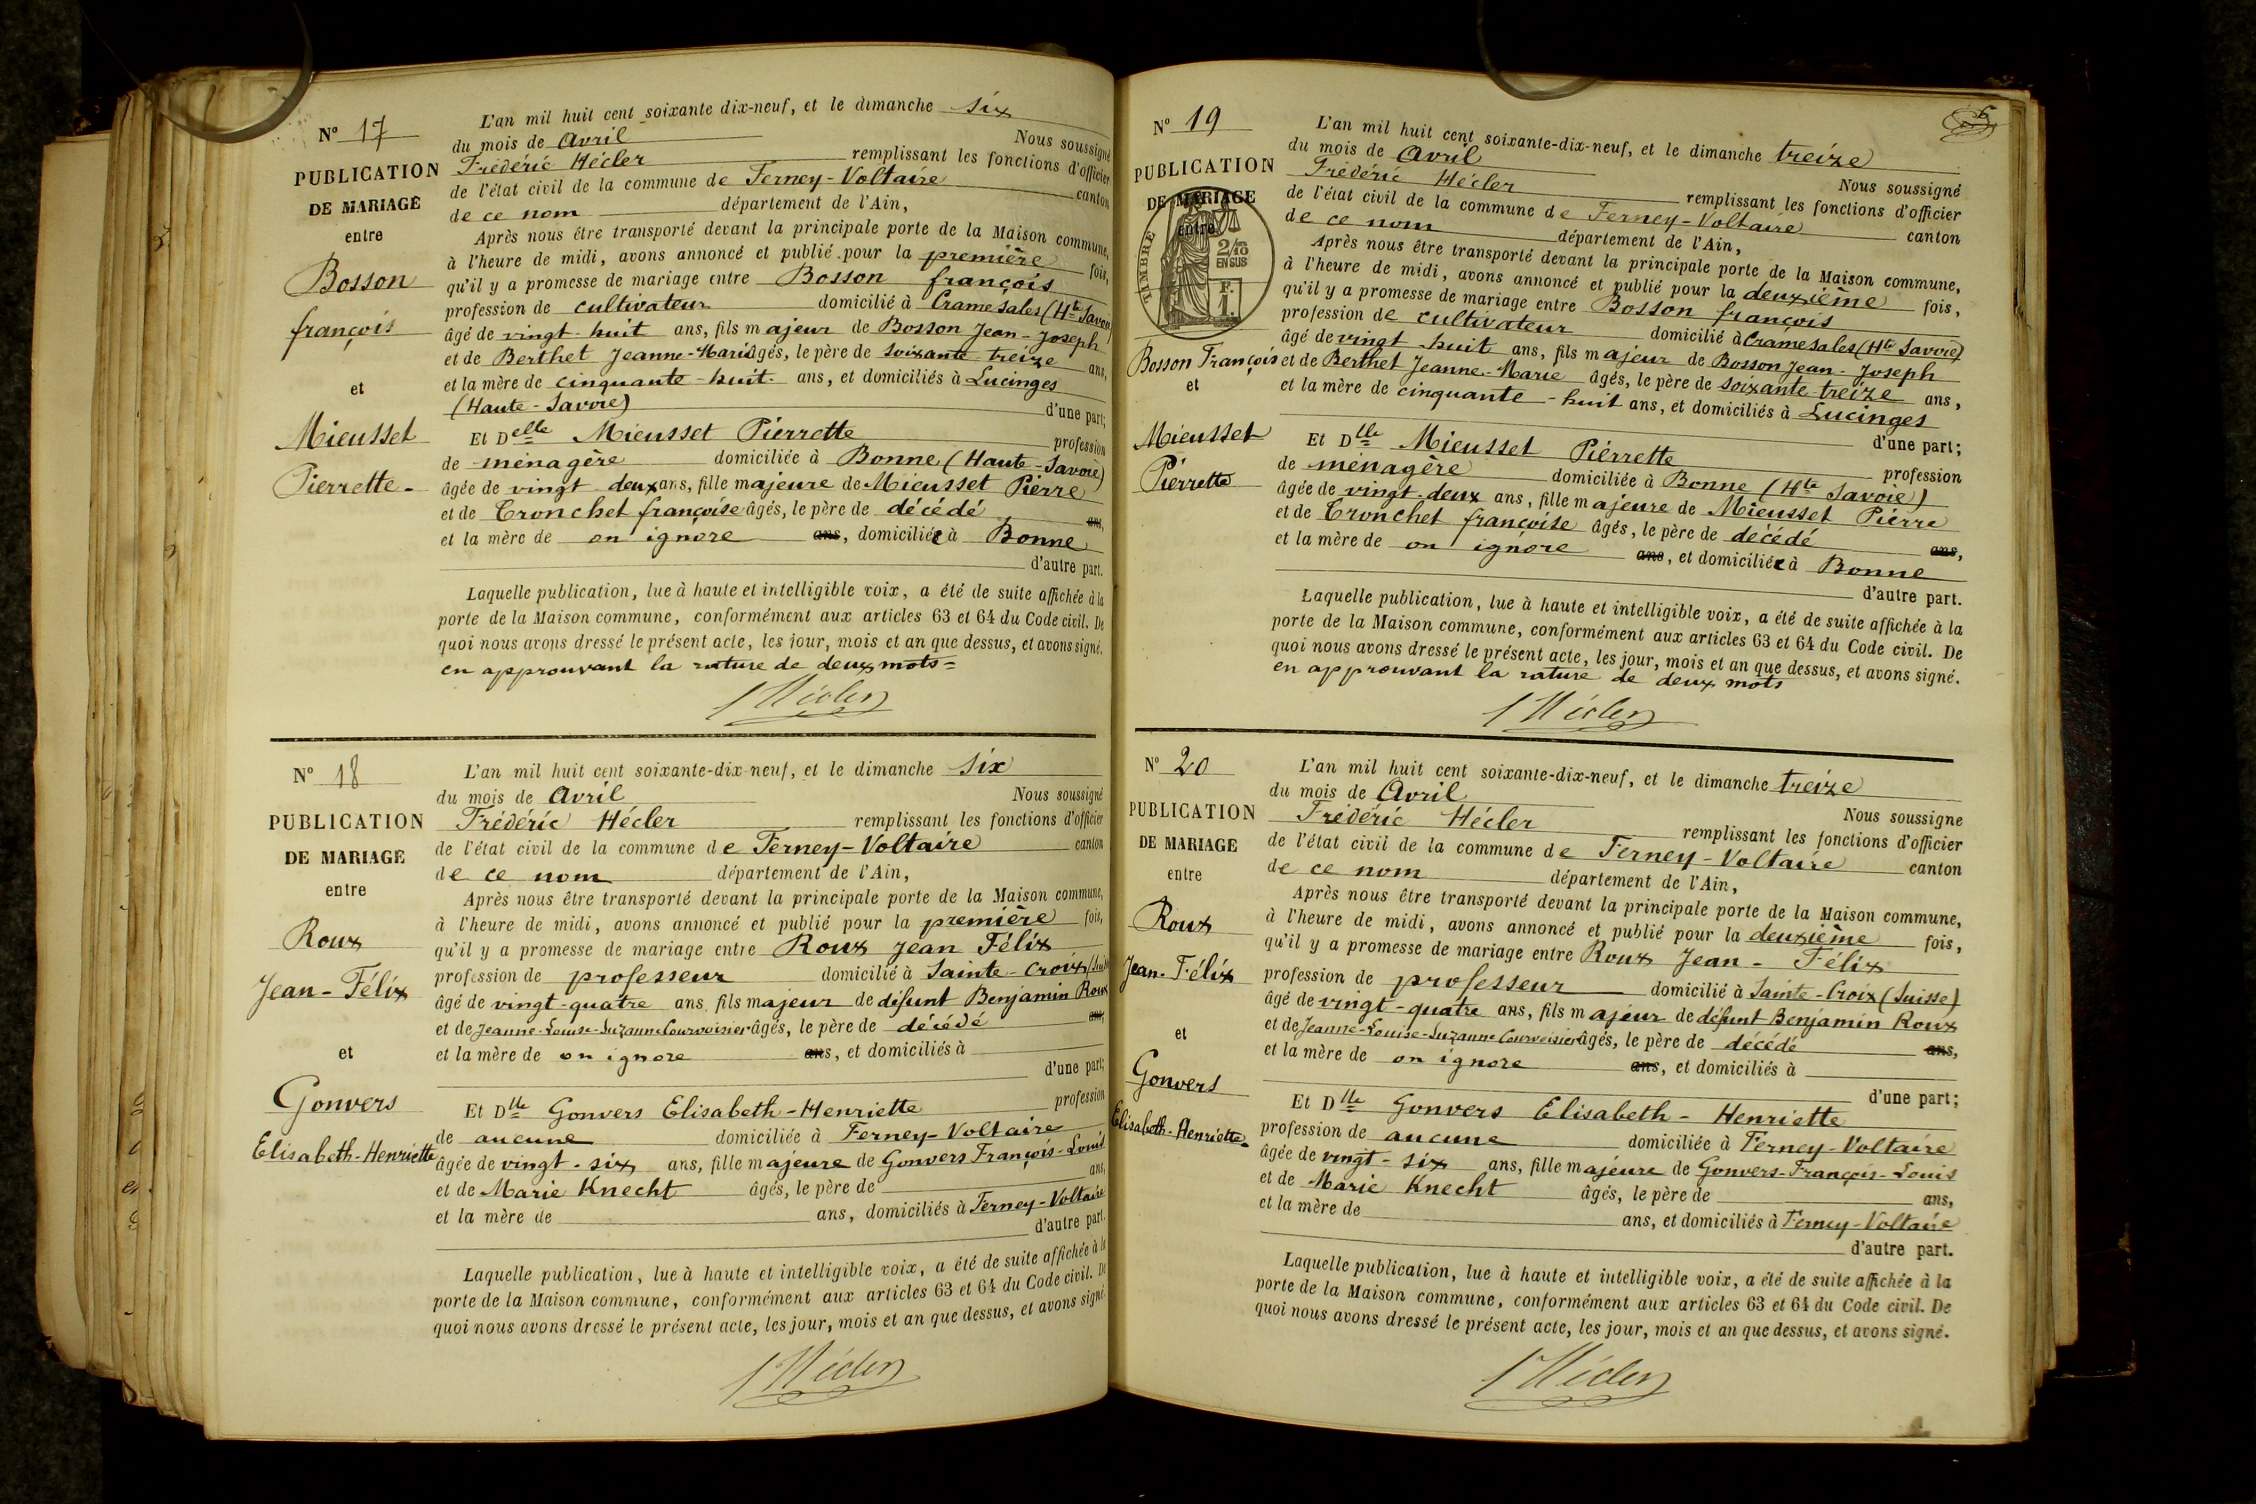 N° 17
PUBLICATION
DE MARIAGE
entre
Bosson
françois
et
Mieusset
Pierrette -
L'an mil huit cent soixante dix-neuf, et le dimanche six
du mois de Avril Nous soussigné
Frédéric Hécler remplissant les fonctions d'officier
de l'état civil de la commune de Ferney-Voltaire canton
de ce nom département de l'Ain,
Après nous être transporté devant la principale porte de la Maison commune,
à l'heure de midi, avons annoncé et publié pour la première fois,
qu'il y a promesse de mariage entre Bosson françois
profession de cultivateur domicilié à Cramesales (Hte Savoie)
âgé de vingt-huit ans, fils majeur de Bosson Jean-Joseph
et de Berthet Jeanne-Marie âgés, le père de soixante treize ans,
et la mère de cinquante-huit ans, et domiciliés à Lucinges
(Haute-Savoie) d'une part;
Et Delle Mieusset Pierrette profession
de ménagère domiciliée à Bonne (Haute-Savoie)
âgée de vingt deux ans, fille majeure de Mieusset Pierre
et de Tronchet françoise âgés, le père de décédé ans,
et la mère de on ignore ans, domiciliée à Bonne
d'autre part.
Laquelle publication, lue à haute et intelligible voix, a été de suite affichée à la
porte de la Maison commune, conformément aux articles 63 et 64 du Code civil. De
quoi nous avons dressé le présent acte, les jour, mois et an que dessus, et avons signé.
en approuvant la rature de deux mots =
f Hécler
N° 18
PUBLICATION
DE MARIAGE
entre
Roux
Jean-Félix
et
Gonvers
Elisabeth-Henriette
L'an mil huit cent soixante-dix-neuf, et le dimanche six
du mois de Avril Nous soussigné
Frédéric Hécler remplissant les fonctions d'officier
de l'état civil de la commune de Ferney-Voltaire canton
de ce nom département de l'Ain,
Après nous être transporté devant la principale porte de la Maison commune,
à l'heure de midi, avons annoncé et publié pour la première fois,
qu'il y a promesse de mariage entre Roux Jean Félix
profession de professeur domicilié à Sainte-Croix
âgé de vingt-quatre ans, fils majeur de défunt Benjamin Roux
et de Jeanne-Louise-Suzanne Courvoisier âgés, le père de décédé ans,
et la mère de on ignore ans, et domiciliés à
d'une part;
Et Dlle Gonvers Elisabeth-Henriette profession
de aucune domiciliée à Ferney-Voltaire
âgée de vingt-six ans, fille majeure de Gonvers François-Louis
et de Marie Knecht âgés, le père de ans,
et la mère de ans, domiciliés à Ferney-Voltaire
d'autre part.
Laquelle publication, lue à haute et intelligible voix, a été de suite affichée à la
porte de la Maison commune, conformément aux articles 63 et 64 du Code civil. De
quoi nous avons dressé le présent acte, les jour, mois et an que dessus, et avons signé.
f Hécler
6
N° 19
PUBLICATION
DE MARIAGE
entre
TIMBRE
2/10
EN SUS
F.
1.
Bosson François
et
Mieusset
Pierrette
L'an mil huit cent soixante-dix-neuf, et le dimanche treize
du mois de Avril Nous soussigné
Frédéric Hécler remplissant les fonctions d'officier
de l'état civil de la commune de Ferney-Voltaire canton
de ce nom département de l'Ain,
Après nous être transporté devant la principale porte de la Maison commune,
à l'heure de midi, avons annoncé et publié pour la deuxième fois,
qu'il y a promesse de mariage entre Bosson françois
profession de cultivateur domicilié à Cramesales (Hte Savoie)
âgé de vingt-huit ans, fils majeur de Bosson Jean-Joseph
et de Berthet Jeanne-Marie âgés, le père de soixante-treize ans,
et la mère de cinquante-huit ans, et domiciliés à Lucinges
d'une part;
Et Dlle Mieusset Pierrette profession
de ménagère domiciliée à Bonne (Hte Savoie)
âgée de vingt-deux ans, fille majeure de Mieusset Pierre
et de Tronchet françoise âgés, le père de décédé ans,
et la mère de on ignore ans, et domiciliée à Bonne
d'autre part.
Laquelle publication, lue à haute et intelligible voix, a été de suite affichée à la
porte de la Maison commune, conformément aux articles 63 et 64 du Code civil. De
quoi nous avons dressé le présent acte, les jour, mois et an que dessus, et avons signé.
en approuvant la rature de deux mots
f Hécler
N° 20
PUBLICATION
DE MARIAGE
entre
Roux
Jean-Félix
et
Gonvers
Elisabeth-Henriette
L'an mil huit cent soixante-dix-neuf, et le dimanche treize
du mois de Avril Nous soussigné
Frédéric Hécler remplissant les fonctions d'officier
de l'état civil de la commune de Ferney-Voltaire canton
de ce nom département de l'Ain,
Après nous être transporté devant la principale porte de la Maison commune,
à l'heure de midi, avons annoncé et publié pour la deuxième fois,
qu'il y a promesse de mariage entre Roux Jean-Félix
profession de professeur domicilié à Sainte-Croix (Suisse)
âgé de vingt-quatre ans, fils majeur de défunt Benjamin Roux
et de Jeanne-Louise-Suzanne Courvoisier âgés, le père de décédé ans,
et la mère de on ignore ans, et domiciliés à
d'une part;
Et Dlle Gonvers Elisabeth-Henriette
profession de aucune domiciliée à Ferney-Voltaire
âgée de vingt-six ans, fille majeure de Gonvers-François-Louis
et de Marie Knecht âgés, le père de ans,
et la mère de ans, et domiciliés à Ferney-Voltaire
d'autre part.
Laquelle publication, lue à haute et intelligible voix, a été de suite affichée à la
porte de la Maison commune, conformément aux articles 63 et 64 du Code civil. De
quoi nous avons dressé le présent acte, les jour, mois et an que dessus, et avons signé.
f Hécler